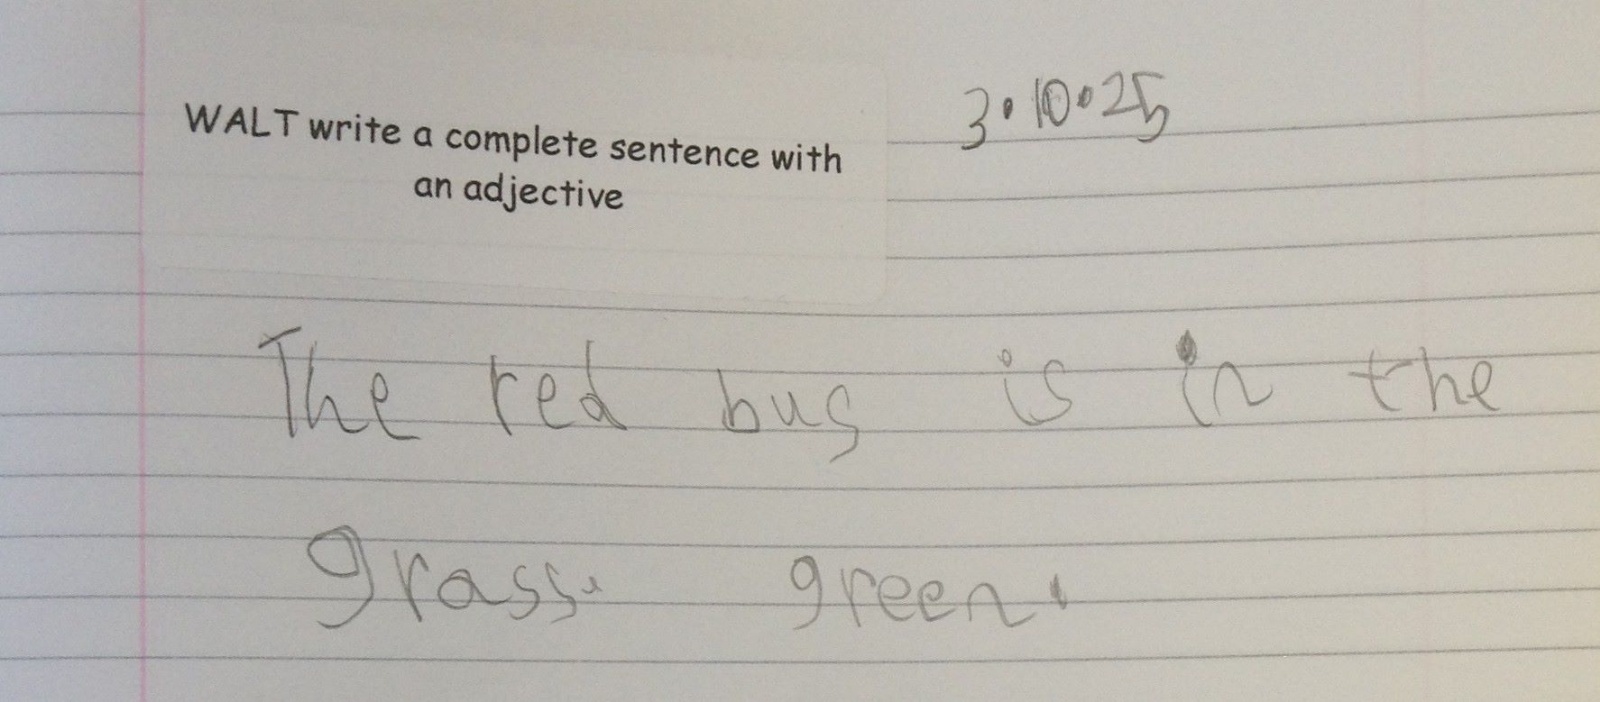 WALT write a complete sentence with
an adjective
3.10.25
The red bug is in the
grass. green.